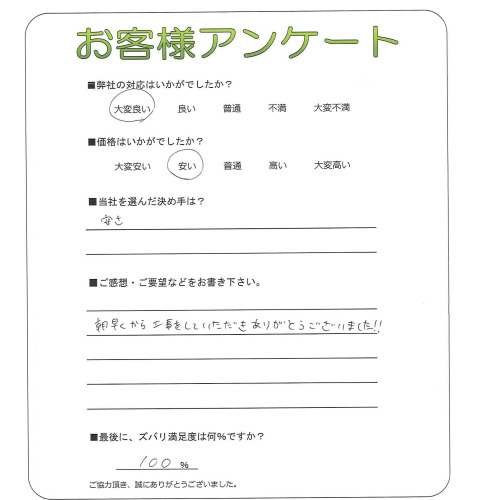 お客様アンケート
■弊社の対応はいかがでしたか？
大変良い 良い 普通 不満 大変不満
■価格はいかがでしたか？
大変安い 安い 普通 高い 大変高い
■当社を選んだ決め手は？
安さ
■ご感想・ご要望などをお書き下さい。
朝早くから工事をしていただきありがとうございました!!
■最後に、ズバリ満足度は何%ですか？
100 %
ご協力頂き、誠にありがとうございました。